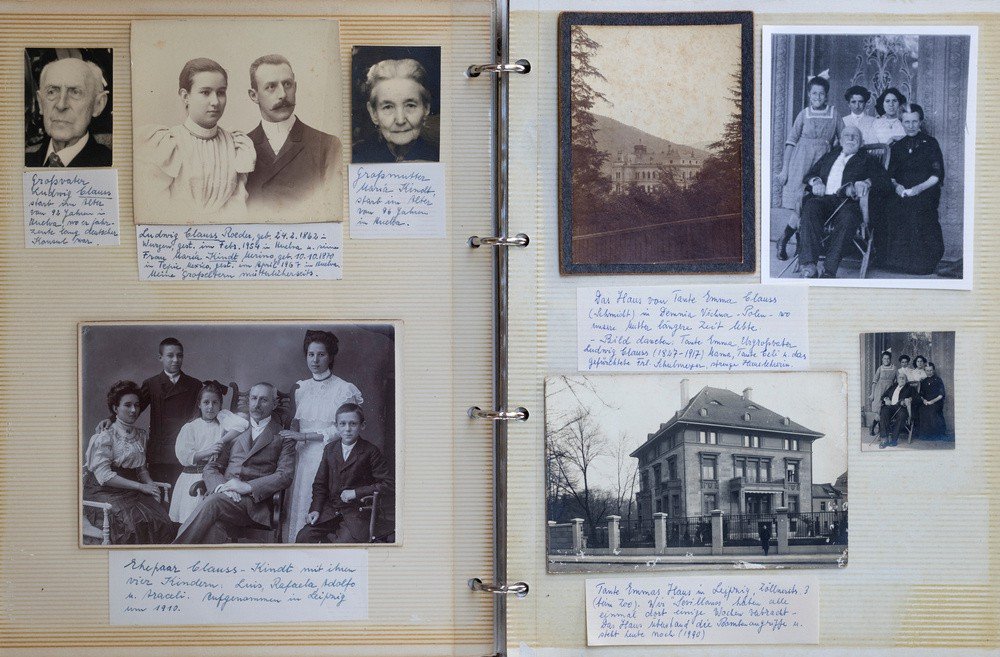 Großvater
Ludwig Clauss
starb im Alter
von 92 Jahren in
Huelva, wo er jahr-
zehnte lang deutscher
Konsul war.
Ludwig Clauss Roeder, geb. 24.2.1862 in
Wurzen, gest. im Febr. 1954 in Huelva u. seine
Frau Maria Kindt Merino, geb. 10.10.1870
in Tepic Mexico, gest. im April 1967 in Huelva.
Meine Großeltern mütterlicherseits.
Großmutter
Maria Kindt,
starb im Alter
von 96 Jahren
in Huelva.
Ehepaar Clauss-Kindt mit ihren
vier Kindern. Luis, Rafaela, Adolfo
u. Araceli. Aufgenommen in Leipzig
um 1910.
Das Haus von Tante Emma Clauss
(Schmidt) in Demnia Viczna - Polen - wo
unsere Mutter längere Zeit lebte.
- Bild daneben: Tante Emma, Urgroßvater
Ludwig Clauss (1827-1917) Mama, Tante Celi u. das
gefürchtete Frl. Schulmeyer, strenge Hauslehrerin.
Tante Emmas Haus in Leipzig, Zöllnerstr. 3
(beim Zoo). Wir "Sevillanos" haben alle
einmal dort einige Wochen verbracht -
Das Haus überstand die Bombenangriffe u.
steht heute noch (1990)